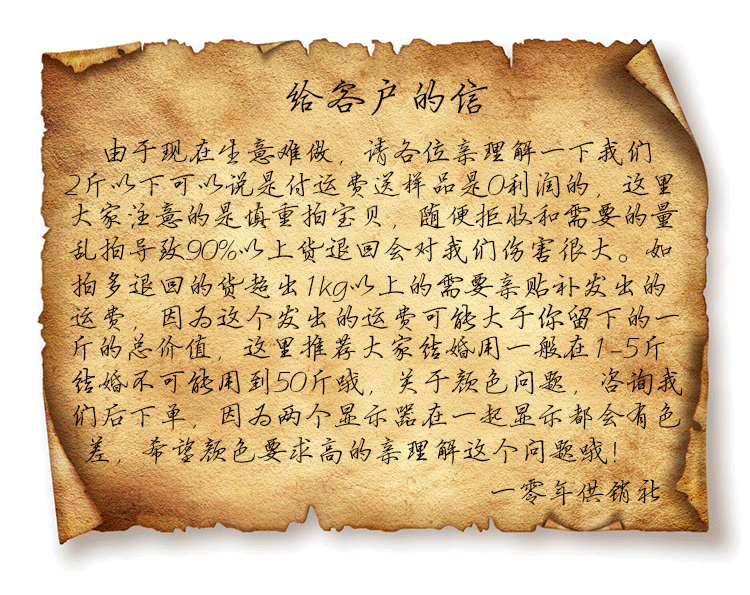 给客户的信
由于现在生意难做，请各位亲理解一下我们
2斤以下可以说是付运费送样品是0利润的，这里
大家注意的是慎重拍宝贝，随便拒收和需要的量
乱拍导致90%以上货退回会对我们伤害很大。如
拍多退回的货超出1kg以上的需要亲贴补发出的
运费，因为这个发出的运费可能大于你留下的一
斤的总价值，这里推荐大家结婚用一般在1-5斤
结婚不可能用到50斤哦，关于颜色问题，咨询我
们后下单，因为两个显示器在一起显示都会有色
差，希望颜色要求高的亲理解这个问题哦！
一零年供销社